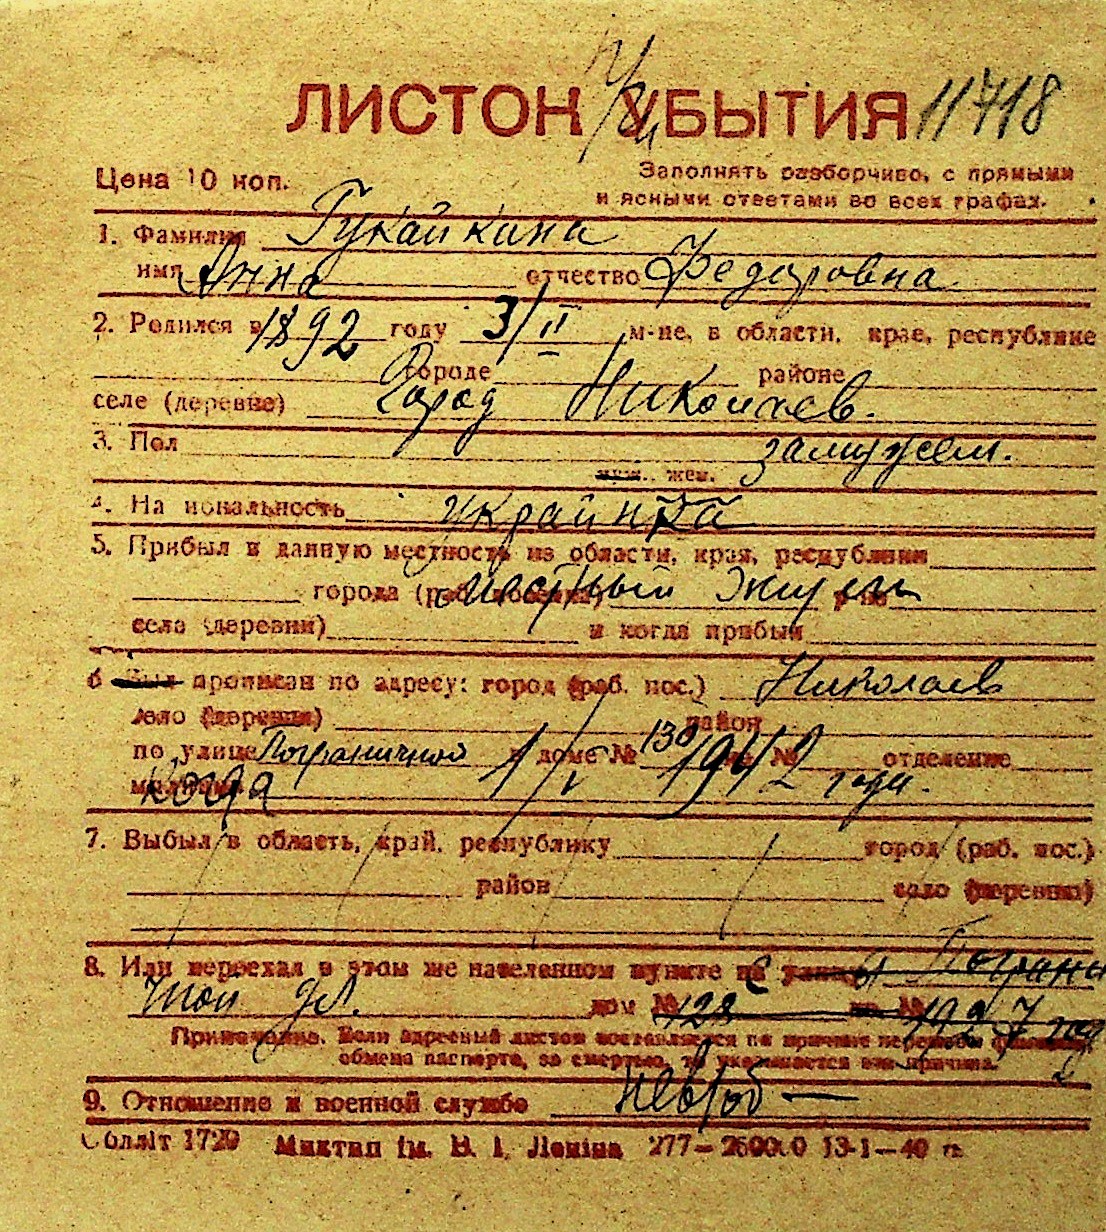 ЛИСТОК УБЫТИЯ 11718
Цена 10 коп. Заполнять разборчиво, с прямыми
и ясными ответами во всех графах.
1. Фамилия Гукайкина
имя Анна отчество Федоровна
2. Родился в 1892 году 3/II м-це, в области, крае, республике
городе районе
селе (деревне) Город Николаев.
3. Пол замужем.
муж. жен.
4. Национальность украинка
5. Прибыл в данную местность из области, края, республики
города (раб. поселка) местный жит р-на
села (деревни) и когда прибыл
6 Был прописан по адресу: город (раб. пос.) Николаев
село (деревня) район
по улице Пограничной в доме № 130 кв. № отделение
милиции когда 1/I 1942 года.
7. Выбыл в область, край, республику город (раб. пос.)
район село (деревня)
8. Или переехал в этом же населенном пункте на улицу Пограни
чной ул. дом № 128 кв. №
Примечание. Если адресный листок составляется по причине перемены фамилии,
обмена паспорта, за смертью, то указывается эта причина.
9. Отношение к военной службе невоб —
Обліт 1729 Миктип ім. В. І. Леніна 277—260000 13-1—40 г.